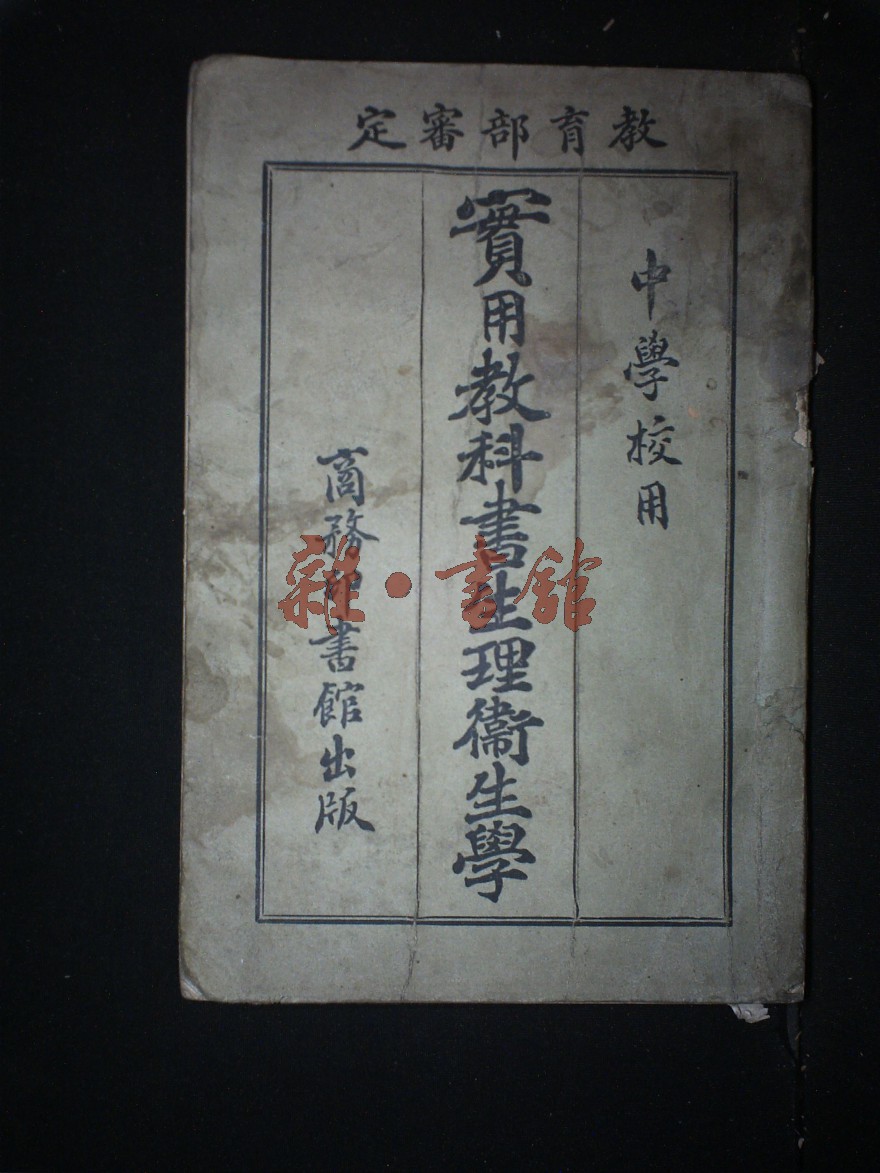 教育部審定
中學校用
實用教科書生理衞生學
商務印書館出版
雜·書館